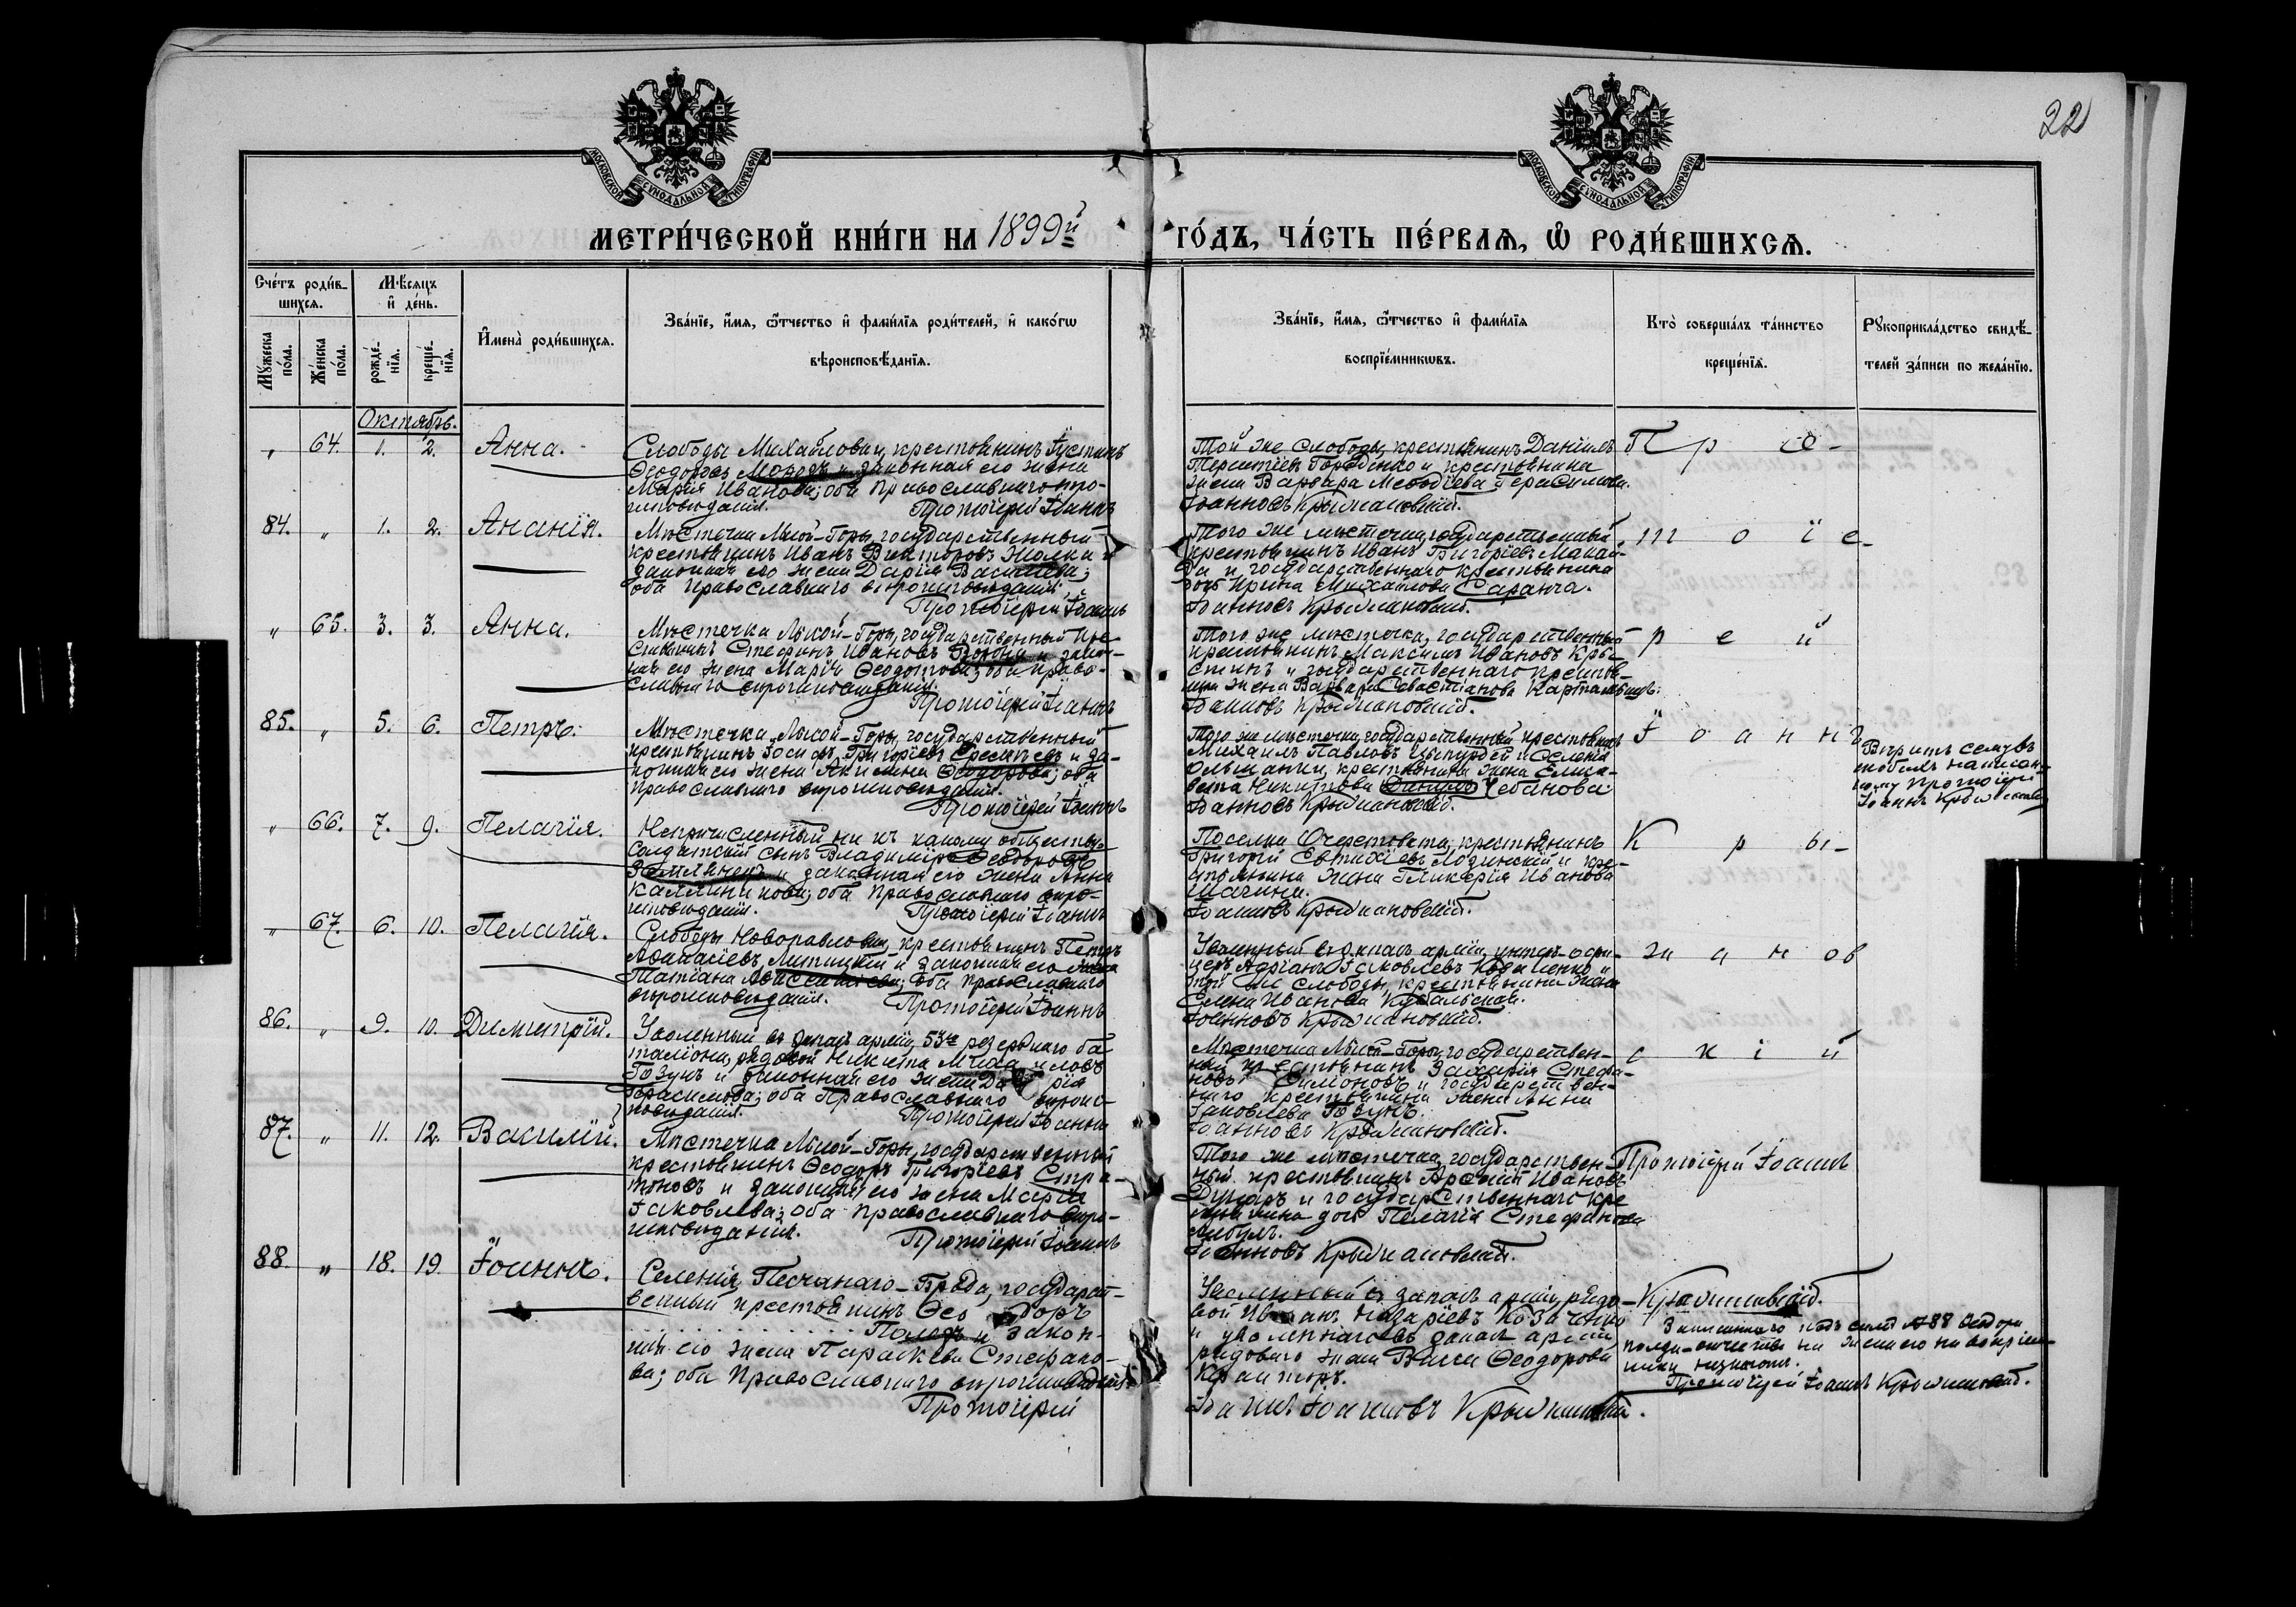 22
МОСКОВСКОЙ СѴНОДАЛЬНОЙ ТИПОГРАФІИ
МОСКОВСКОЙ СѴНОДАЛЬНОЙ ТИПОГРАФІИ
МЕТРИ́ЧЕСКОЙ КНИ́ГИ НА 1899й ГО́ДЪ, ЧА́СТЬ ПЕ́РВАЯ, Ѽ РОДИ́ВШИХСЯ.
Сче́тъ роди́вшихся.
Мꙋ́жеска по́ла.
Же́нска по́ла.
Мѣ́сяцъ и҆ де́нь.
рожде́нїя.
креще́нїя.
И҆мена̀ роди́вшихся.
Зва́нїе, и҆́мя, ѻ҆́тчество и҆ фами́лїя роди́телей, и҆ како́гѡ
вѣроисповѣ́данїя.
Зва́нїе, и҆́мя, ѻ҆́тчество и҆ фами́лїя
воспрїе́мникѡвъ.
Кто̀ соверша́лъ та́инство
креще́нїя.
Рꙋкоприкла́дство свидѣ́-
телей за́писи по жела́нїю.
Октябрь.
„ 64. 1. 2. Анна.
Слободы Михайловки, крестьянинъ Іустинъ
Ѳеодоровъ и законная его жена
Марія Иванова; оба Православнаго вѣро-
исповѣданія. Протоіерей Іоаннъ
Той же слободы, крестьянинъ Даніилъ
Терентіевъ Городенко и крестьянина
жена Варвара Меѳодіева Герасимова.
Іоанновъ Крыжановскій.
П р о-
84. „ 1. 2. Ананія.
Мѣстечка Лысой-Горы, государственный
крестьянинъ Иванъ Викторовъ и
законная его жена Дарія Васильева;
оба Православнаго вѣроисповѣданія.
Протоіерей Іоаннъ
Того же мѣстечка, государственный
крестьянинъ Иванъ Григоріевъ
и государственнаго крестьянина
дочь Ирина Михайлова Саранча.
Іоанновъ Крыжановскій.
т о і е-
„ 65. 3. 3. Анна.
Мѣстечка Лысой-Горы, государственный кре-
стьянинъ Стефанъ Ивановъ и закон-
ная его жена Марія Ѳеодотова; оба Право-
славнаго вѣроисповѣданія.
Протоіерей Іоаннъ
Того же мѣстечка, государственный
крестьянинъ Максимъ Ивановъ
и государственнаго крестья-
нина жена Варвара Севастіанова
Іоанновъ Крыжановскій.
р е й
85. „ 5. 6. Петръ.
Мѣстечка Лысой-Горы, государственный
крестьянинъ Іосифъ Григоріевъ и за-
конная его жена Акилина Ѳеодорова; оба
Православнаго вѣроисповѣданія.
Протоіерей Іоаннъ
Того же мѣстечка, государственный крестьянинъ
Михаилъ Павловъ и селенія
Ольшанки, крестьянина жена Елиса-
вета Никитова Чебанова.
Іоанновъ Крыжановскій.
І о а н н ъ
Вѣрить сему въ
написан-
ному Протоіерей
Іоаннъ Крыжановскій
„ 66. 7. 9. Пелагія.
Непричисленный ни къ какому обществу
солдатскій сынъ Владиміръ Ѳеодоровъ
и законная его жена Анна
Каллиникова; оба Православнаго вѣро-
исповѣданія. Протоіерей Іоаннъ
Поселка крестьянинъ
Григорій Евтихіевъ Лозинскій и кре-
стьянина жена Гликерія Иванова
Іоанновъ Крыжановскій.
К р ы-
„ 67. 6. 10. Пелагія.
Слободы Новопавловки, крестьянинъ Петръ
Аѳанасіевъ и законная его жена
Татіана оба Православнаго
вѣроисповѣданія. Протоіерей Іоаннъ
Уволенный въ запасъ арміи, унтеръ-офи-
церъ Адріанъ Іаковлевъ и
той же слободы, крестьянина жена
Елена Иванова
Іоанновъ Крыжановскій.
ж а н ов
86. „ 9. 10. Димитрій.
Уволенный въ запасъ арміи, 53го резервнаго ба-
таліона, рядовой Никита Михаиловъ
Гозунъ и законная его жена Дарія
Герасимова; оба Православнаго вѣроис-
повѣданія. Протоіерей Іоаннъ
Мѣстечка Лысой-Горы, государствен-
ный крестьянинъ Захарія Стефа-
новъ Симоновъ и государствен-
наго крестьянина жена Анна
Іаковлева Гозунъ.
Іоанновъ Крыжановскій.
с к і й
87. „ 11. 12. Василій.
Мѣстечка Лысой-Горы, государственный
крестьянинъ Ѳеодоръ Григоріевъ
и законная его жена Марѳа
Іаковлева; оба Православнаго вѣро-
исповѣданія. Протоіерей Іоаннъ
Того же мѣстечка, государствен-
ный крестьянинъ Арсеній Ивановъ
и государственнаго кре-
стьянина дочь Пелагія Стефанова
Іоанновъ Крыжановскій.
Протоіерей Іоаннъ
88. „ 18. 19. Іоиннъ.
Селенія Песчанаго-Брода, государст-
венный крестьянинъ Ѳеодоръ
и закон-
ная его жена Параскева Стефано-
ва; оба Православнаго вѣроисповѣданія.
Протоіерей
Уволенный въ запасъ арміи, рядо-
вой Иванъ Назаріевъ Козаченко
и уволеннаго въ запасъ арміи
рядоваго жена Васса Ѳеодорова
Іоаннъ Іоанновъ Крыжановскій.
Крыжановскій.
Записаннаго подъ симъ №88
отчество
Протоіерей Іоаннъ Крыжановскій.